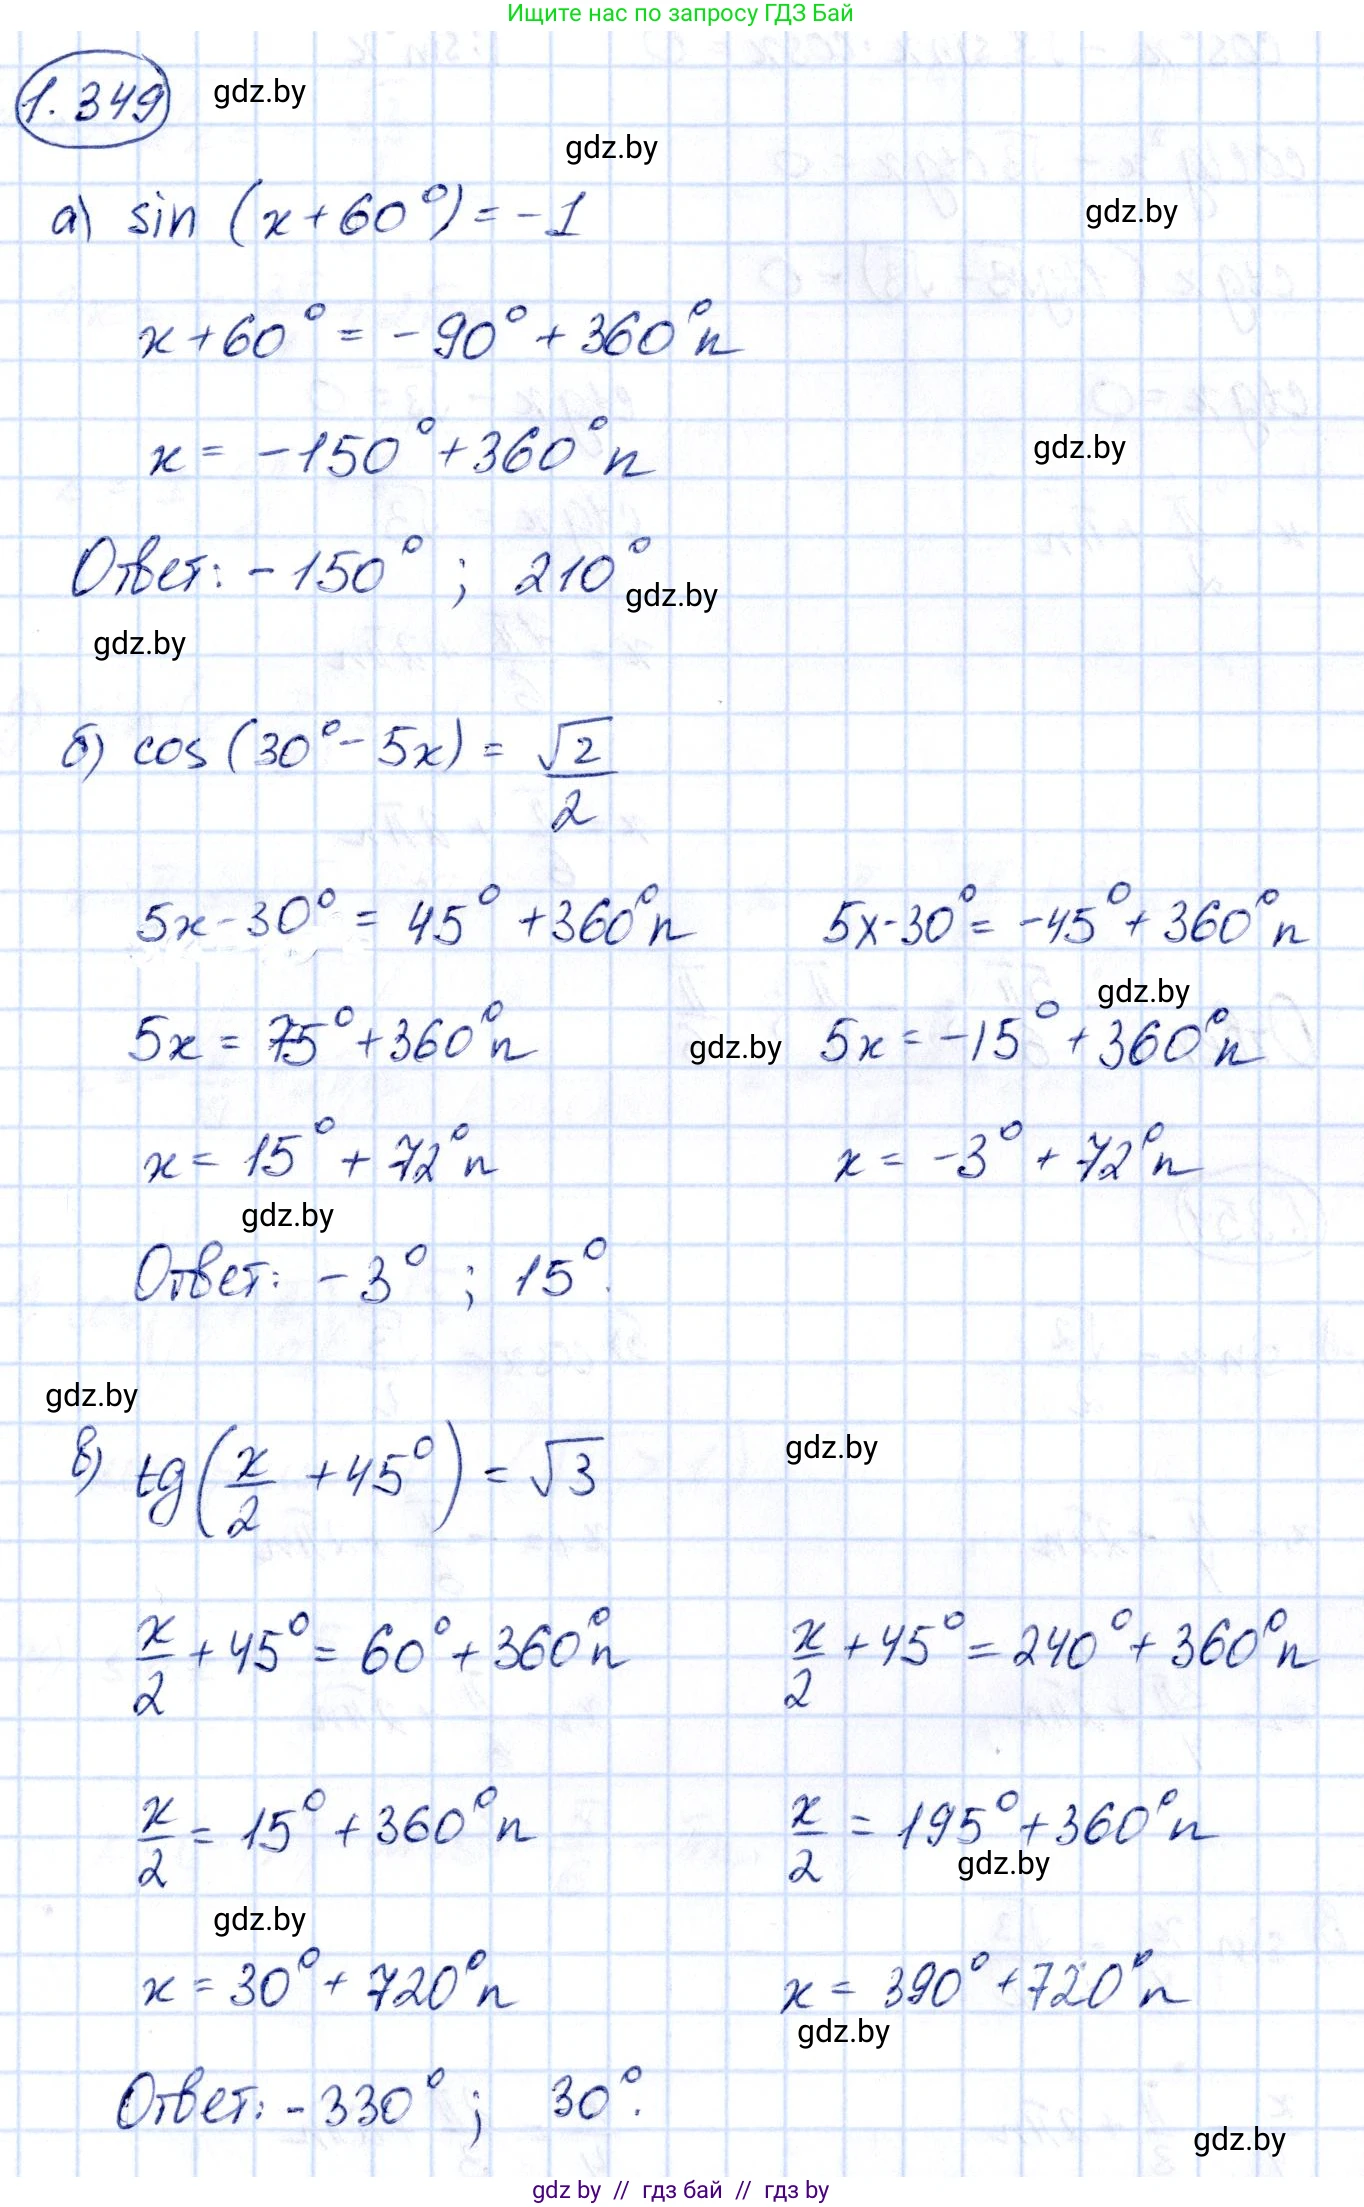 Ищите нас по запросу ГДЗ Бай
1.349 gdz.by
gdz.by
а) sin (x+60°)=-1 gdz.by
x+60°=-90°+360°n
x=-150°+360°n gdz.by
Ответ: -150° ; 210° gdz.by
gdz.by
б) cos(30°-5x)=√2/2
5x-30°=45°+360°n 5x-30°=-45°+360°n
gdz.by
5x=75°+360°n gdz.by 5x=-15°+360°n
x=15°+72°n x=-3°+72°n
gdz.by
Ответ: -3° ; 15°.
gdz.by
в) tg(x/2+45°)=√3 gdz.by
x/2+45°=60°+360°n x/2+45°=240°+360°n
x/2=15°+360°n x/2=195°+360°n
gdz.by
gdz.by
x=30°+720°n x=390°+720°n
gdz.by
Ответ: -330° ; 30°.
gdz.by
gdz by // гдз бай // gdz by